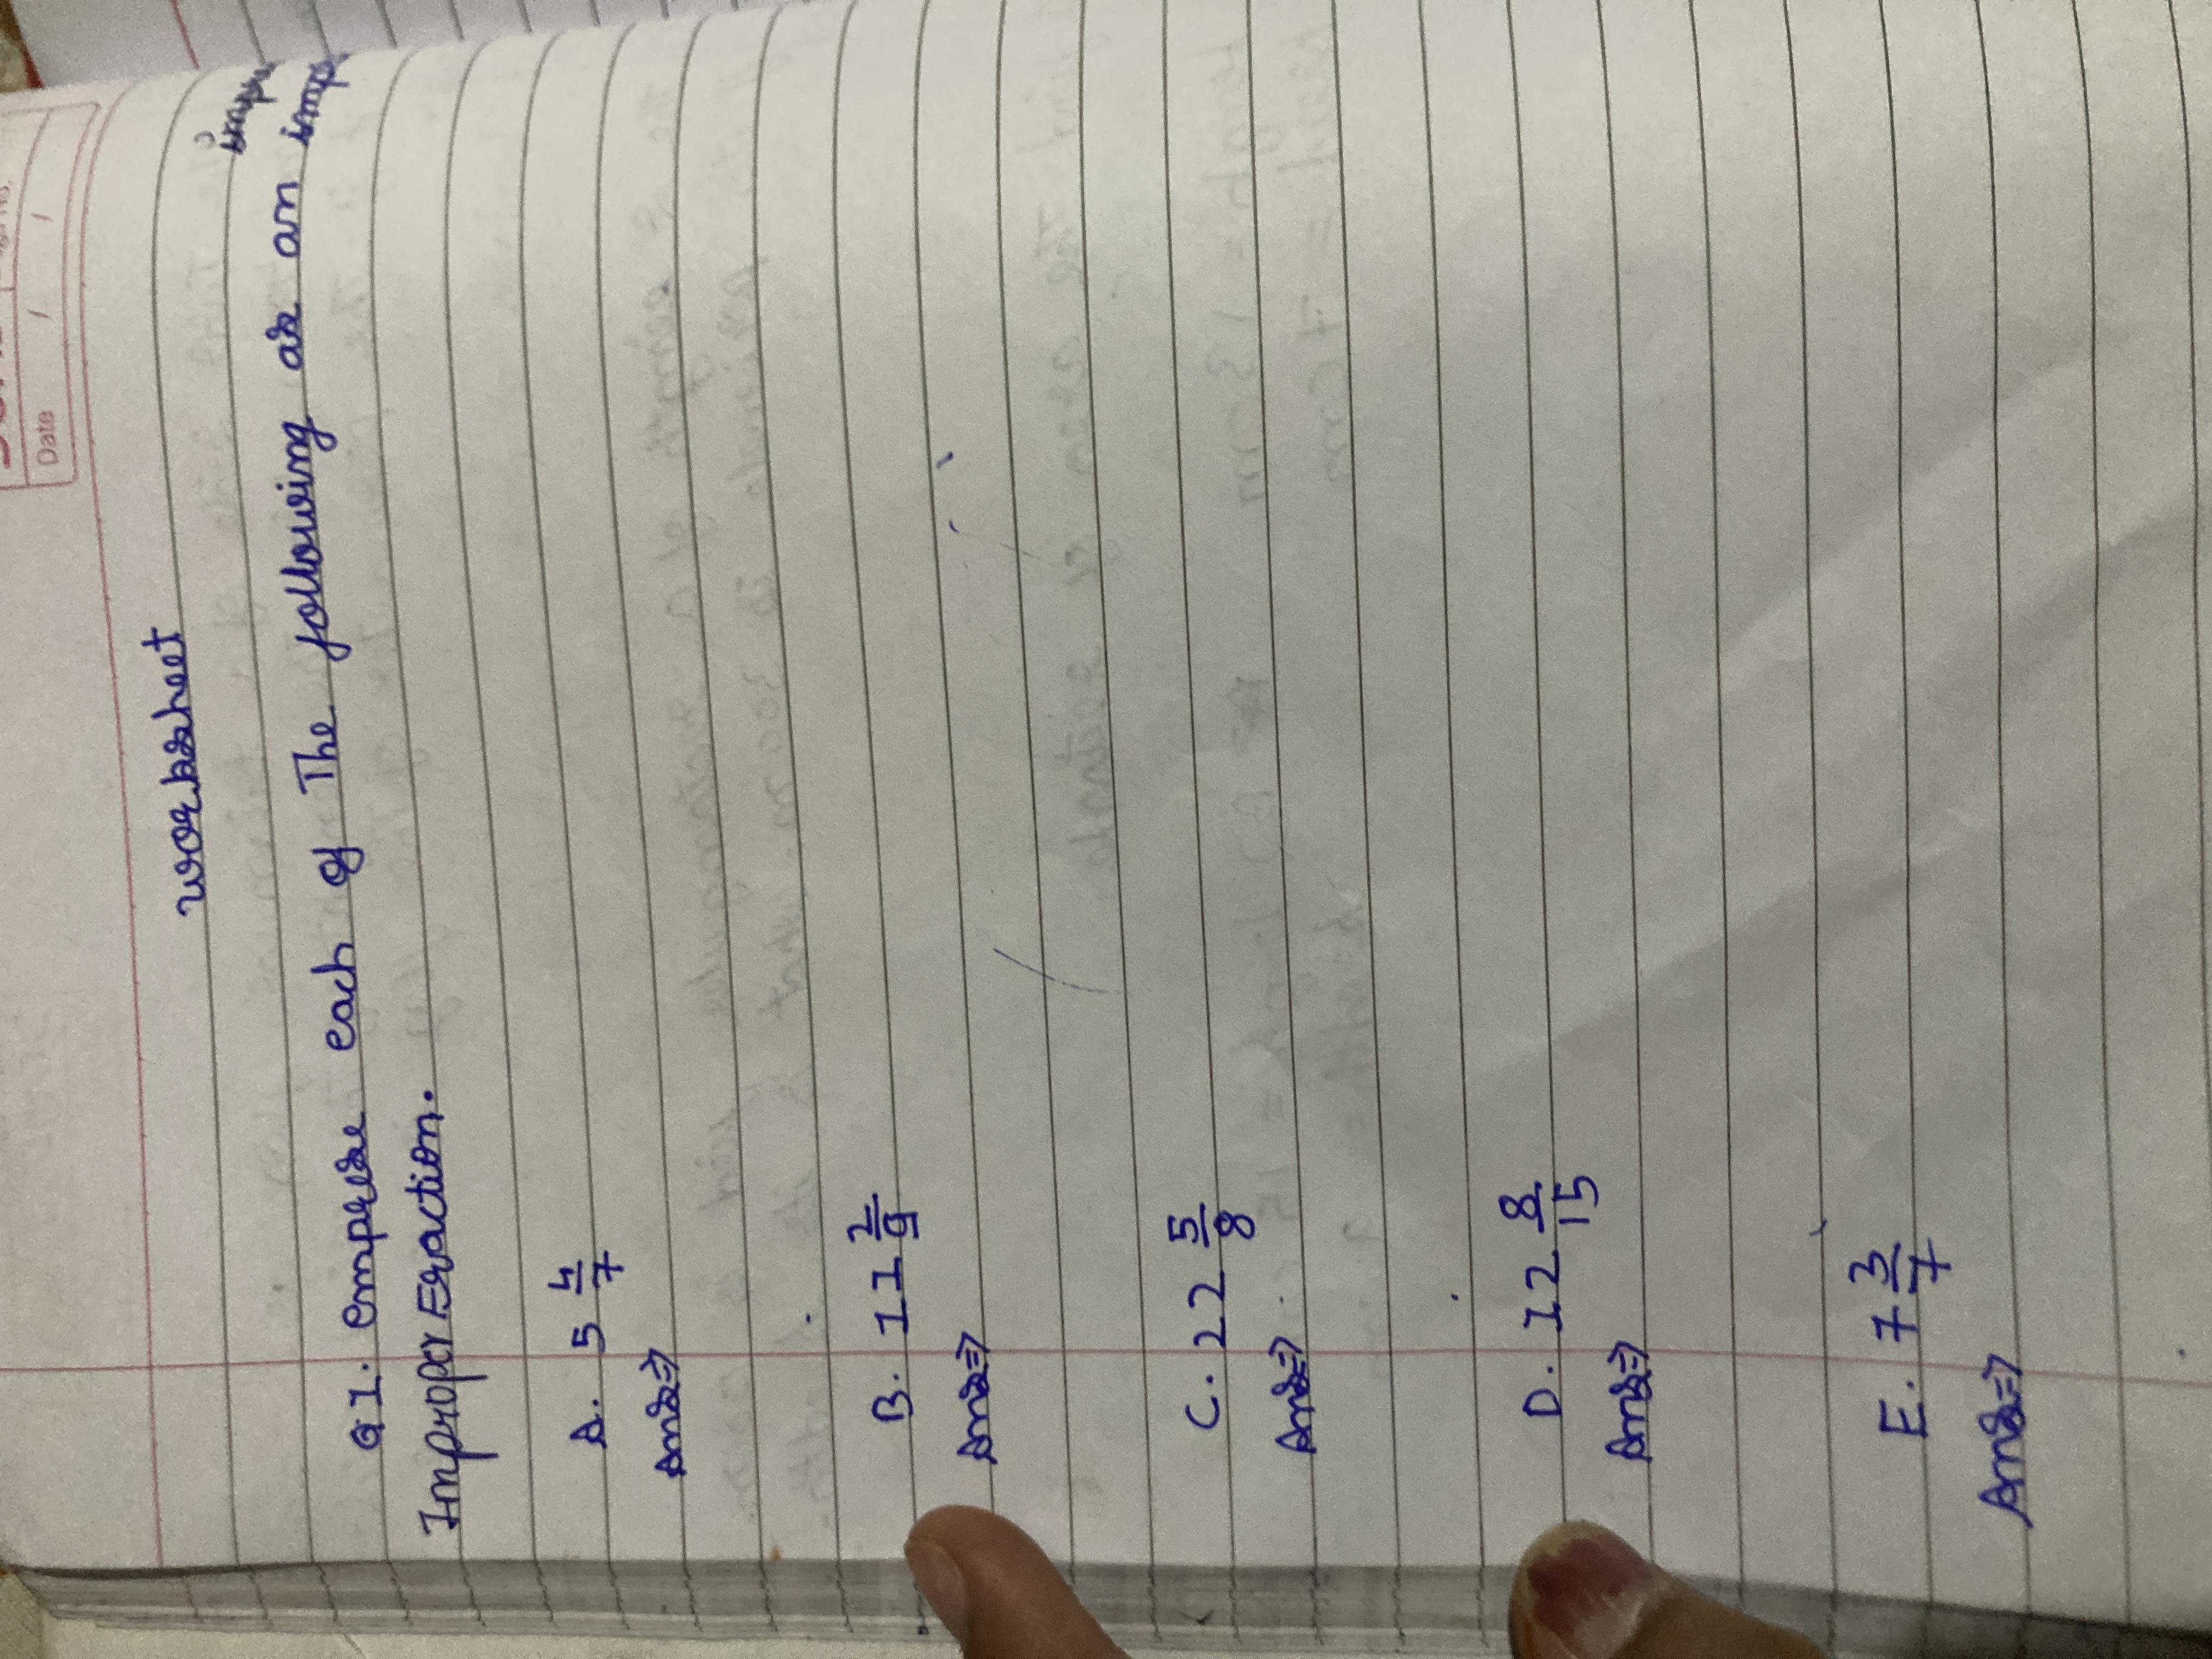 Date / /
worksheet
Q1. express each of The following as an
Improper Fraction.
A. 5 4/7
Ans⇒
B. 11 2/9
Ans⇒
C. 22 5/8
Ans⇒
D. 12 8/15
Ans⇒
E. 7 3/7
Ans⇒